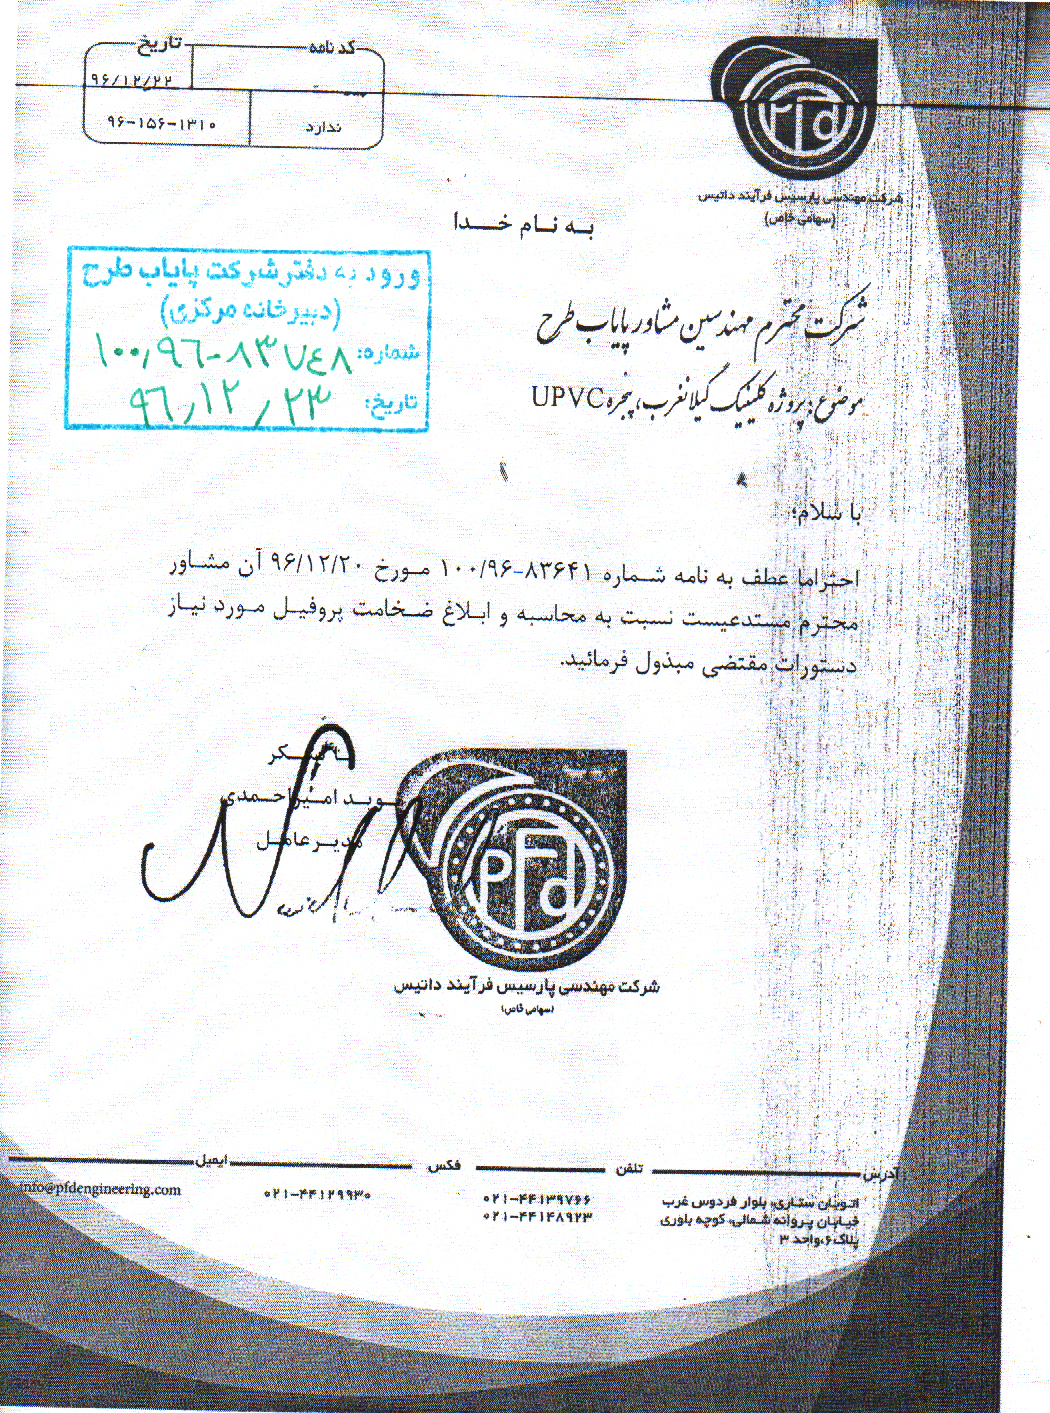 کد نامه
تاریخ
۹۶/۱۲/۲۲
ندارد
۹۶-۱۵۶-۱۳۱۰
شرکت مهندسی پارسیس فرآیند داتیس
(سهامی خاص)
به نام خدا
ورود به دفتر شرکت پایاب طرح
(دبیرخانه مرکزی)
شماره: ۱۰۰٫۹۶-۸۳۷۴۸
تاریخ: ۹۶٫۱۲٫۲۳
شرکت محترم مهندسین مشاور پایاب طرح
موضوع: پروژه کلینیک گیلانغرب، پنجره UPVC
با سلام؛
احتراما عطف به نامه شماره ۱۰۰/۹۶-۸۳۶۴۱ مورخ ۹۶/۱۲/۲۰ آن مشاور
محترم مستدعیست نسبت به محاسبه و ابلاغ ضخامت پروفیل مورد نیاز
دستورات مقتضی مبذول فرمائید.
با تشکر
امیراحمدی
مدیر عامل
PFd
شرکت مهندسی پارسیس فرآیند داتیس
(سهامی خاص)
آدرس
اتوبان ستاری، بلوار فردوس غرب
خیابان پروانه شمالی، کوچه بلوری
پلاک ۶، واحد ۳
تلفن
۰۲۱-۴۴۱۳۹۷۶۶
۰۲۱-۴۴۱۴۸۹۲۳
فکس
۰۲۱-۴۴۱۲۹۹۳۰
ایمیل
info@pfdengineering.com